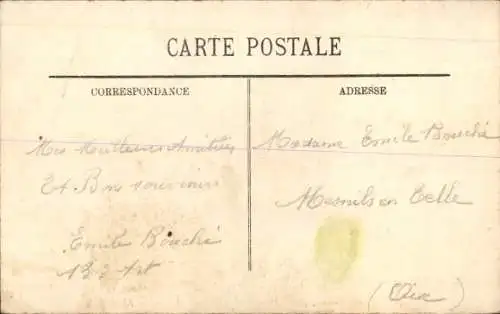 CARTE POSTALE
CORRESPONDANCE
ADRESSE
Mes Meilleures Amitiés
Et Bon souvenir
Emile Bouché
Madame Emile Bouché
Mesnils en Telle
(Oise)